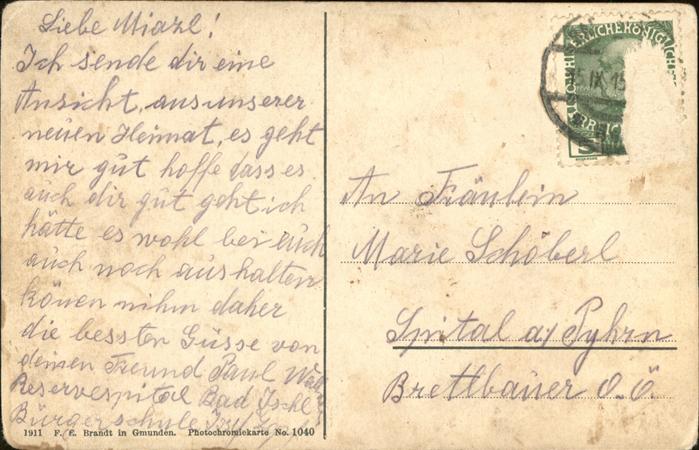 Liebe Miazl!
Ich sende dir eine
Ansicht, aus unserer
neuen Heimat, es geht
mir gut hoffe dass es
auch dir gut geht ich
hätte es wohl bei euch
auch noch aushalten
könen nihm daher
die bessten Güsse von
deinen Freund Paul
Reservespital Bad Ischl
Bürgerschule
1911 F. E. Brandt in Gmunden. Photochromiekarte No. 1040
5 IX 15
An Fräulein
Marie Schöberl
Spital a/ Pyhrn
Brettbauer O. Ö.